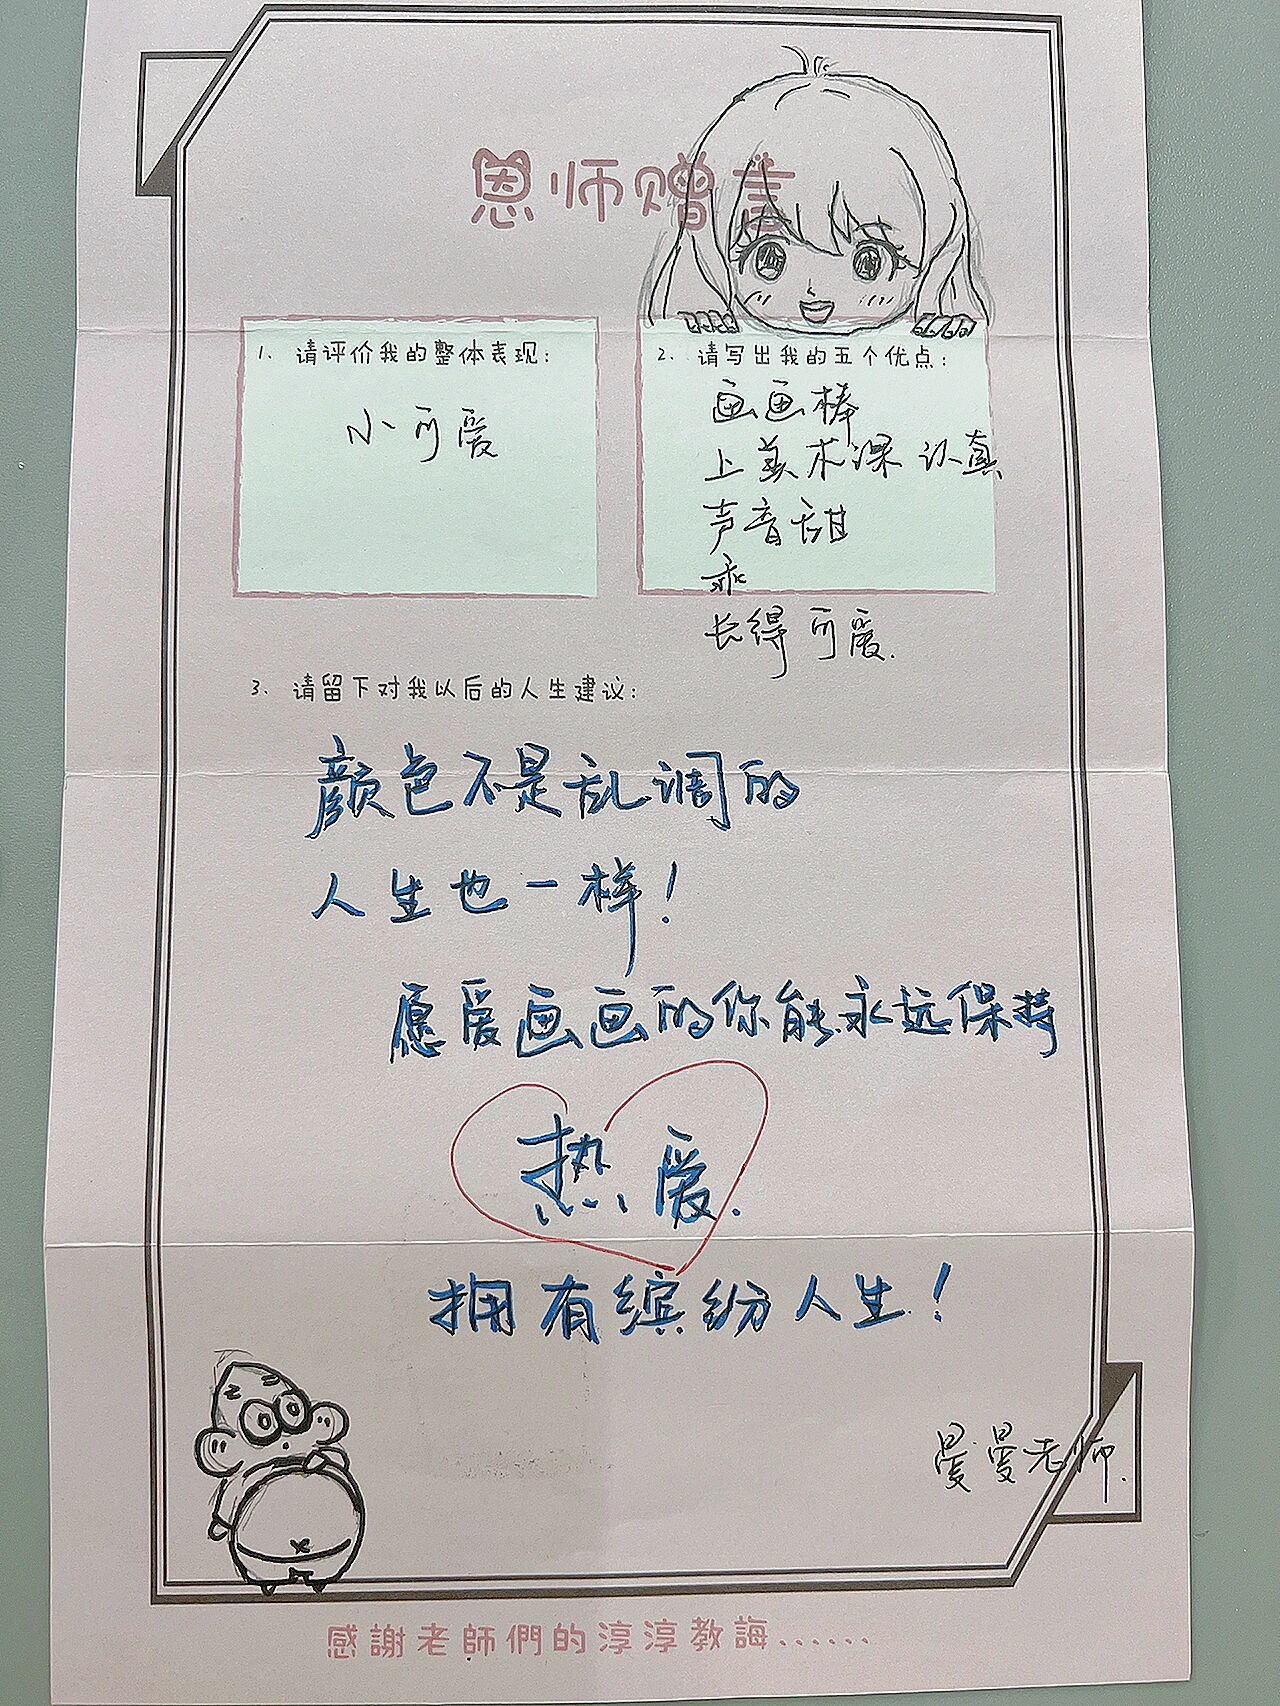 恩师赠言
1. 请评价我的整体表现:
小可爱
2. 请写出我的五个优点:
画画棒
上美术课认真
声音甜
乖
长得可爱.
3. 请留下对我以后的人生建议:
颜色不是乱调的
人生也一样!
愿爱画画的你能永远保持
热爱.
拥有缤纷人生!
曼曼老师.
感謝老師們的淳淳教誨......